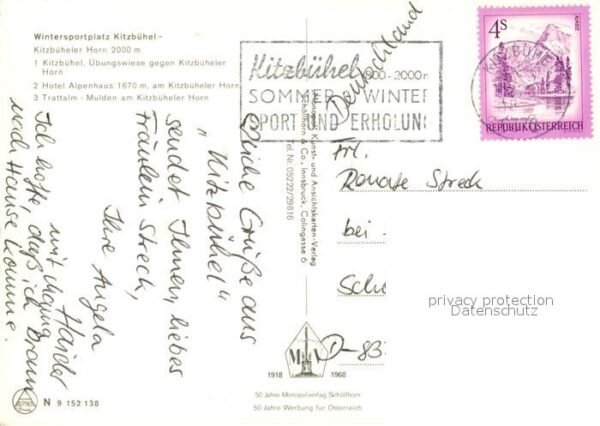 Wintersportplatz Kitzbühel -
Kitzbüheler Horn 2000 m
1 Kitzbühel, Übungswiese gegen Kitzbüheler
Horn
2 Hotel Alpenhaus 1670 m, am Kitzbüheler Horn
3 Trattalm - Mulden am Kitzbüheler Horn
Kitzbühel 800-2000m
SOMMER WINTER
SPORT UND ERHOLUNG
4S
REPUBLIK ÖSTERREICH
KITZBÜHEL
Deutschland
Frl.
Renate Streck
bei
Sch
D-83
privacy protection
Datenschutz
Monopol, Kunst- und Ansichtskarten-Verlag
Schöllhorn & Co., Innsbruck, Colingasse 6
Tel. Nr. 05222/29816
Grüße aus
"Kitzbühel"
sendet Ihnen, liebes
Fräulein Streck,
Ihre Angela
Haider
Ich hoffe, daß ich braun
nach Hause komme.
1918 M V 1968
50 Jahre Monopolverlag Schöllhorn
50 Jahre Werbung für Österreich
ALPINA
N 9 152 138